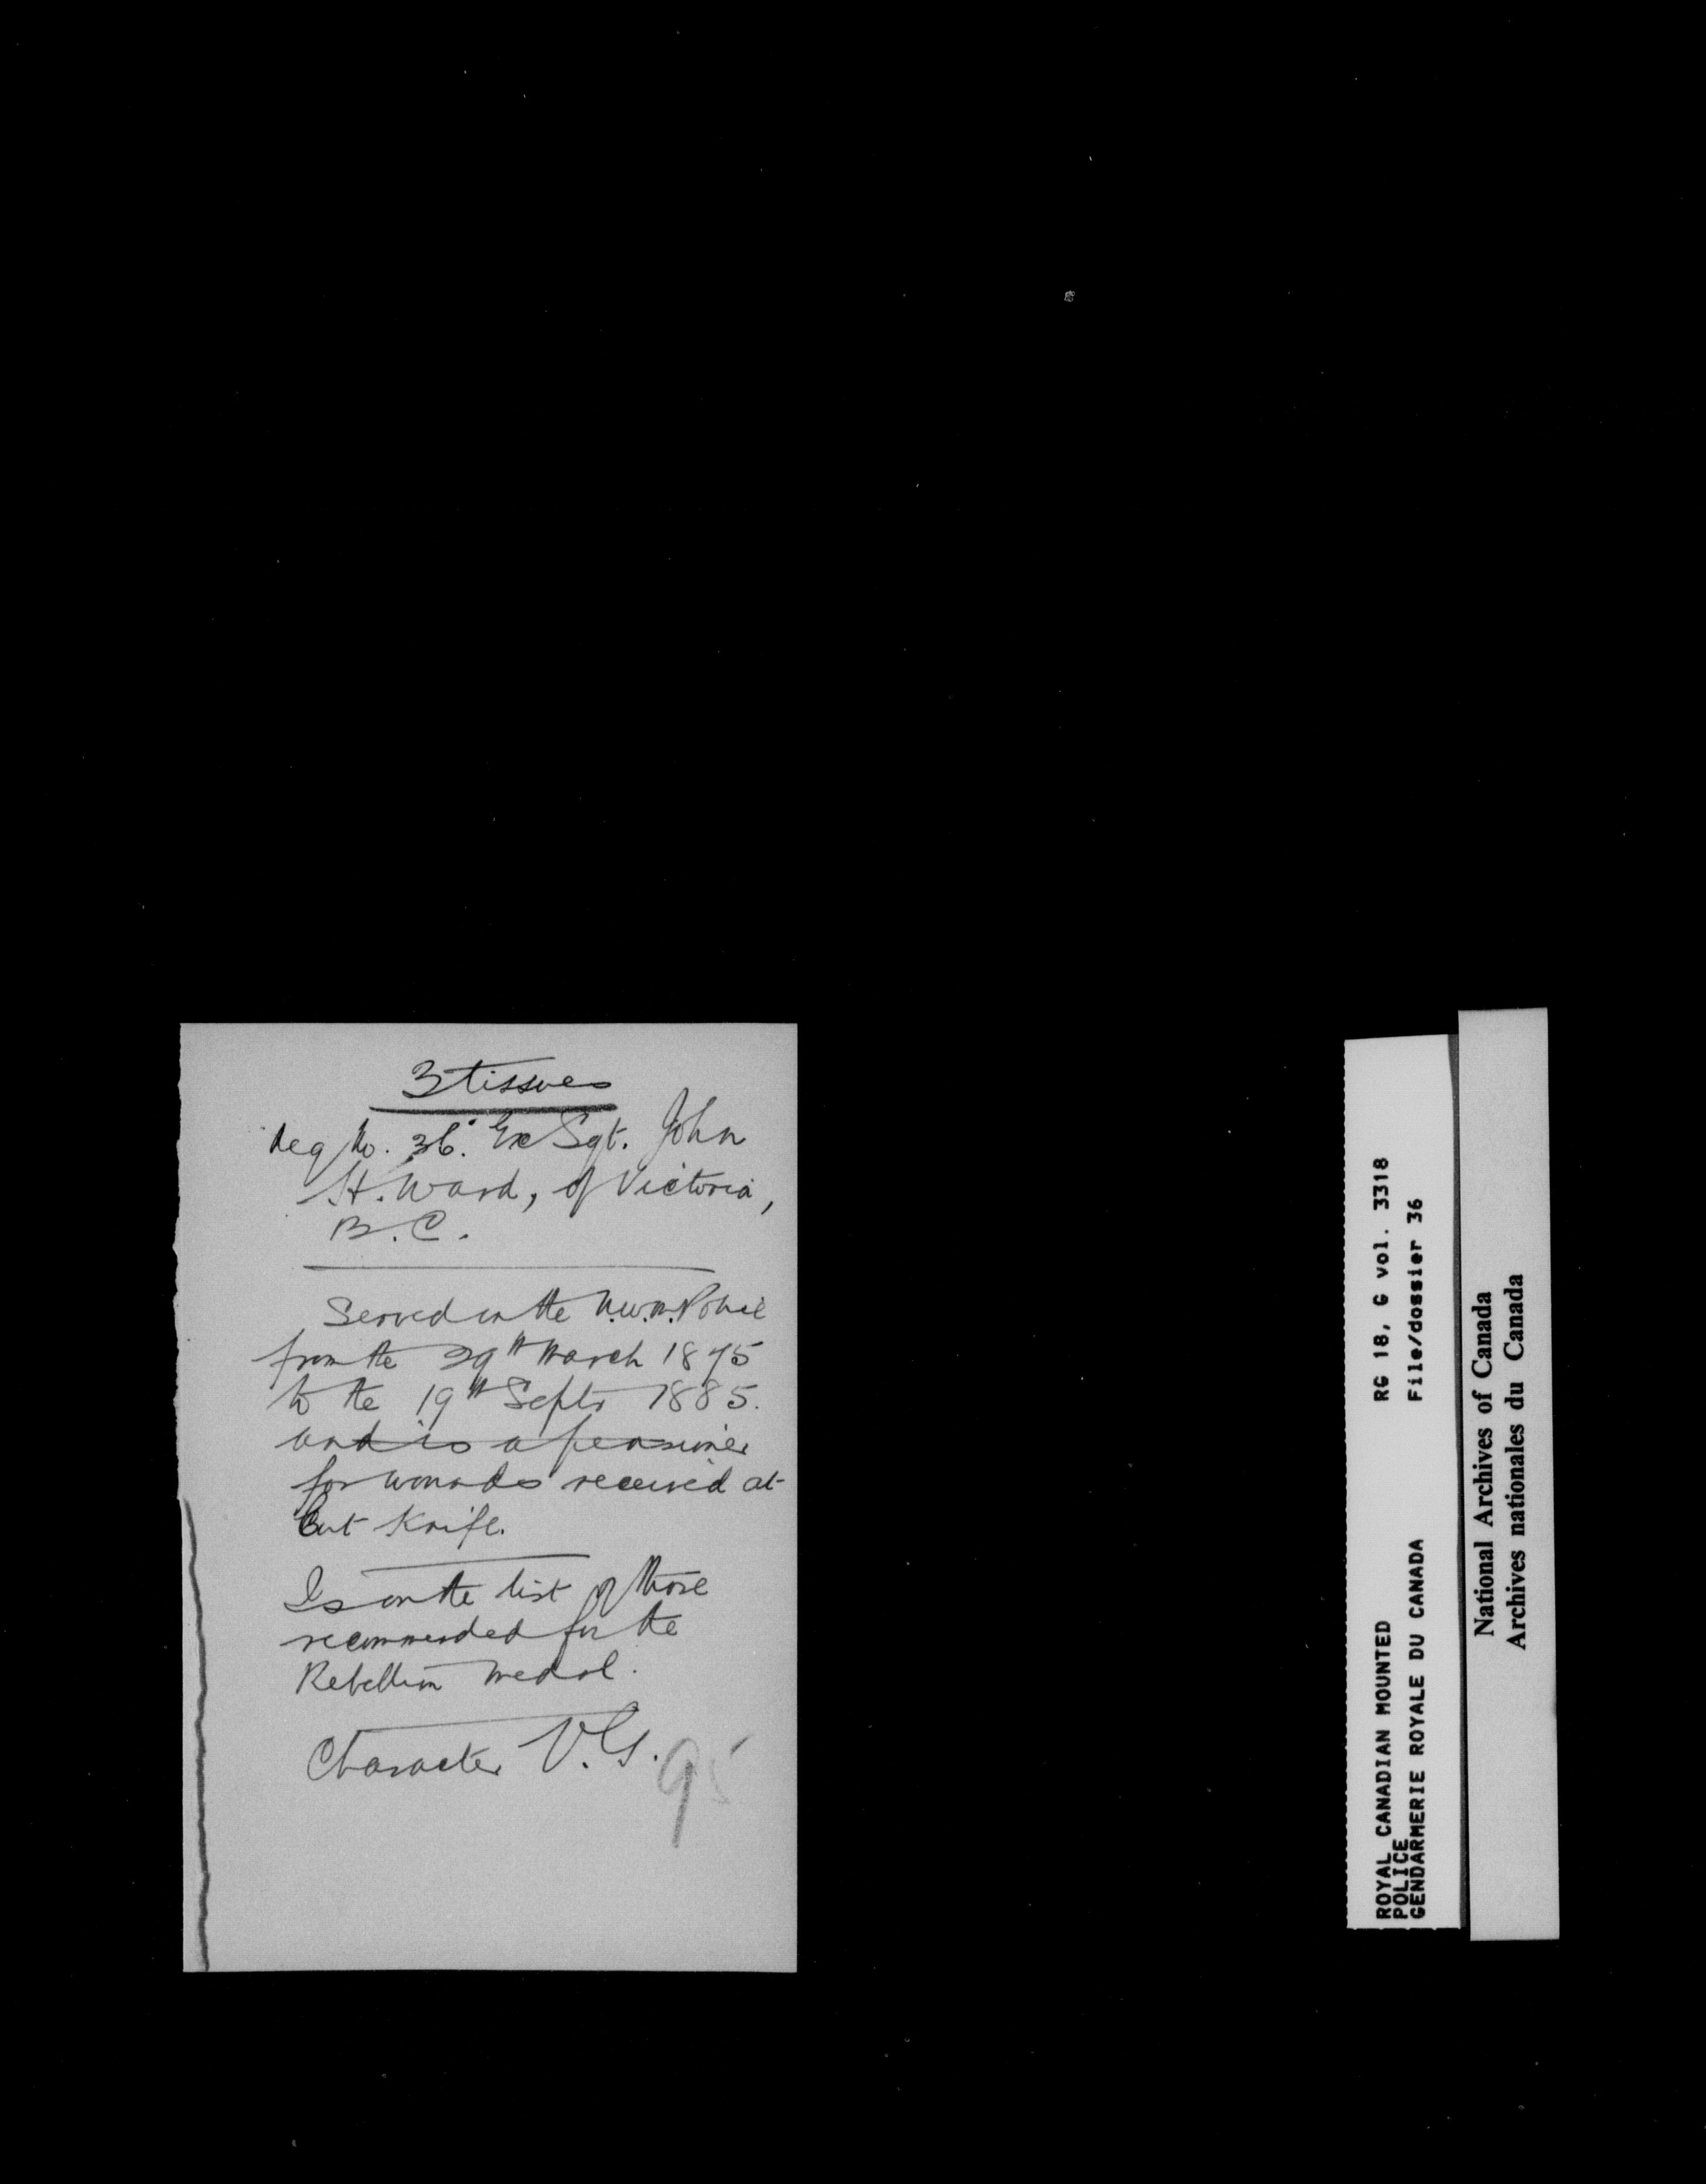 3 tissues
Reg No. 36. Ex Sgt. John
H. Ward, of Victoria,
B.C.
Served in the N.W.M. Police
from the 29th March 1875
to the 19th Septr 1885.
and is a pensioner
for wounds received at
Cut Knife.
Is on the list of those
recommended for the
Rebellion medal.
Character V.G.
ROYAL CANADIAN MOUNTED
POLICE
GENDARMERIE ROYALE DU CANADA
RG 18, G vol. 3318
File/dossier 36
National Archives of Canada
Archives nationales du Canada